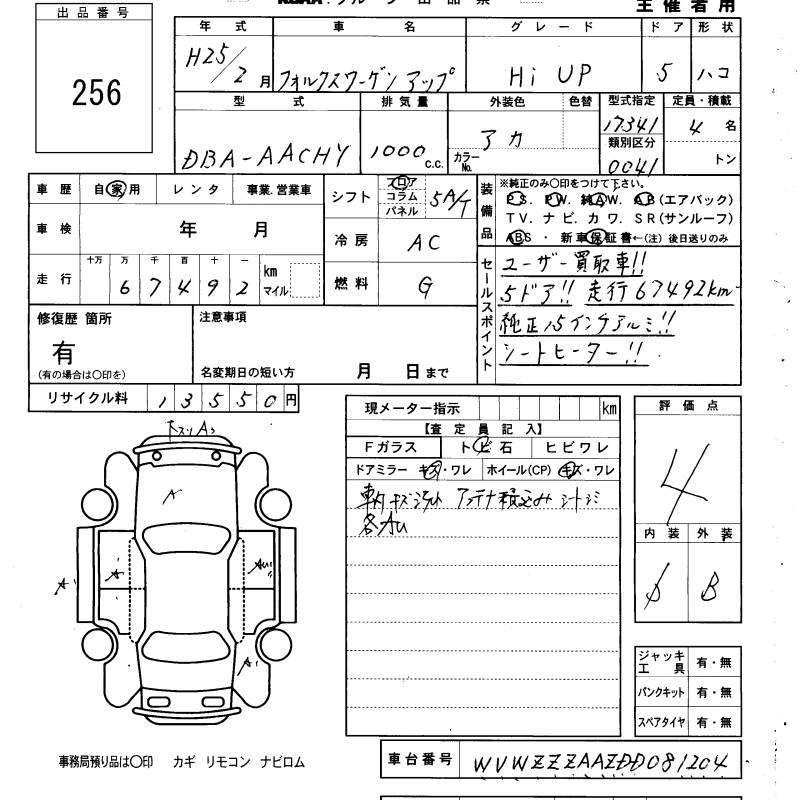 主催者用
出品番号
256
年式 車名 グレード ドア 形状
H25/2月 フォルクスワーゲン アップ Hi UP 5 ハコ
型式 排気量 外装色 色替 型式指定 定員・積載
DBA-AACHY 1000 C.C. アカ カラーNo. 17341 4 名
類別区分
0041 トン
車歴 自家用 レンタ 事業.営業車
シフト フロア コラム パネル 5A/T
装備品 ※純正のみ○印をつけて下さい。
P.S. P.W. 純A.W. A.B(エアバッグ)
T.V. ナビ. カワ. S.R(サンルーフ)
ABS ・ 新車保証書←(注)後日送りのみ
車検 年 月
冷房 AC
走行 十万 万 千 百 十 一 km マイル
6 7 4 9 2
燃料 G
セールスポイント
ユーザー買取車!!
5ドア!! 走行67492km
純正15インチアルミ!!
シートヒーター!!
修復歴 箇所
有
(有の場合は○印を)
注意事項
名変期日の短い方 月 日まで
リサイクル料 13550円
現メーター指示 km
【査定員記入】
Fガラス トビ石 ヒビワレ
ドアミラー キズ・ワレ ホイール(CP) キズ・ワレ
アンテナ積込み
各AU
評価点
4
内装 外装
B
A
A
ジャッキ工具 有・無
パンクキット 有・無
スペアタイヤ 有・無
事務局預り品は○印 カギ リモコン ナビロム
車台番号 WVWZZZAAZDD081204